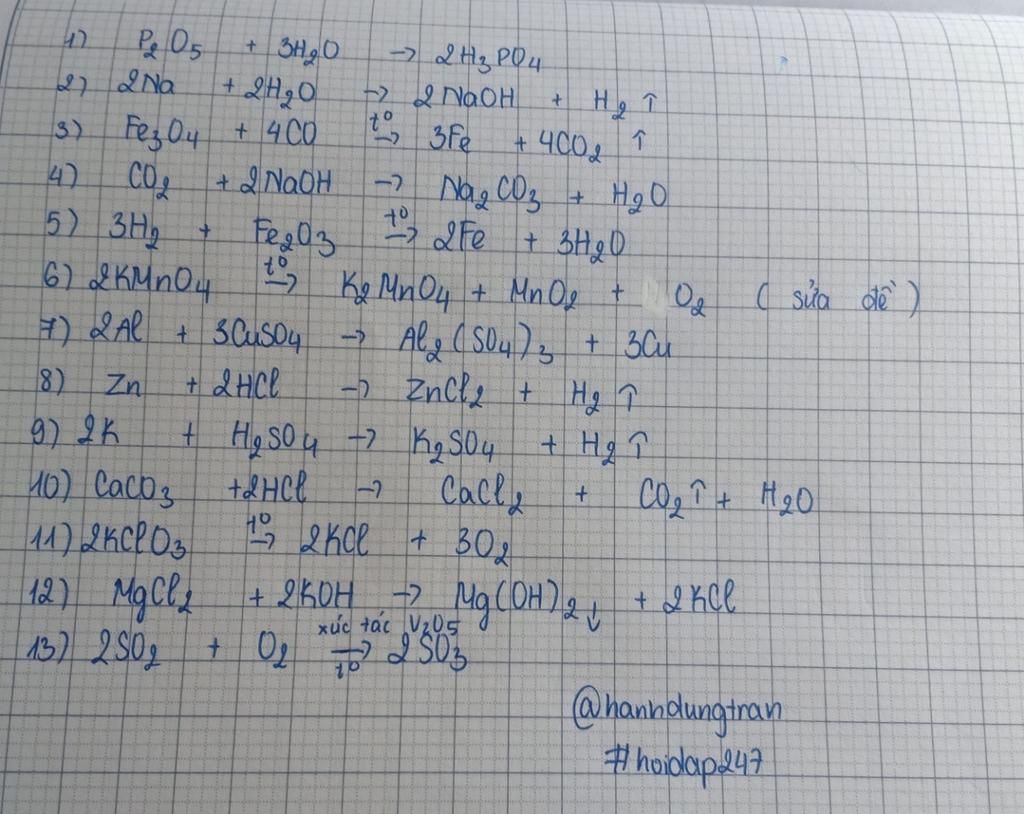 1) P₂O₅ + 3H₂O → 2H₃PO₄
2) 2Na + 2H₂O → 2NaOH + H₂ ↑
3) Fe₃O₄ + 4CO t⁰→ 3Fe + 4CO₂ ↑
4) CO₂ + 2NaOH → Na₂CO₃ + H₂O
5) 3H₂ + Fe₂O₃ t⁰→ 2Fe + 3H₂O
6) 2KMnO₄ t⁰→ K₂MnO₄ + MnO₂ + O₂ ( sửa đề )
7) 2Al + 3CuSO₄ → Al₂(SO₄)₃ + 3Cu
8) Zn + 2HCl → ZnCl₂ + H₂ ↑
9) 2K + H₂SO₄ → K₂SO₄ + H₂ ↑
10) CaCO₃ + 2HCl → CaCl₂ + CO₂ ↑ + H₂O
11) 2KClO₃ t⁰→ 2KCl + 3O₂
12) MgCl₂ + 2KOH → Mg(OH)₂ ↓ + 2KCl
xúc tác V₂O₅
13) 2SO₂ + O₂ → 2SO₃
t⁰
@hanhdungtran
#hoidap247